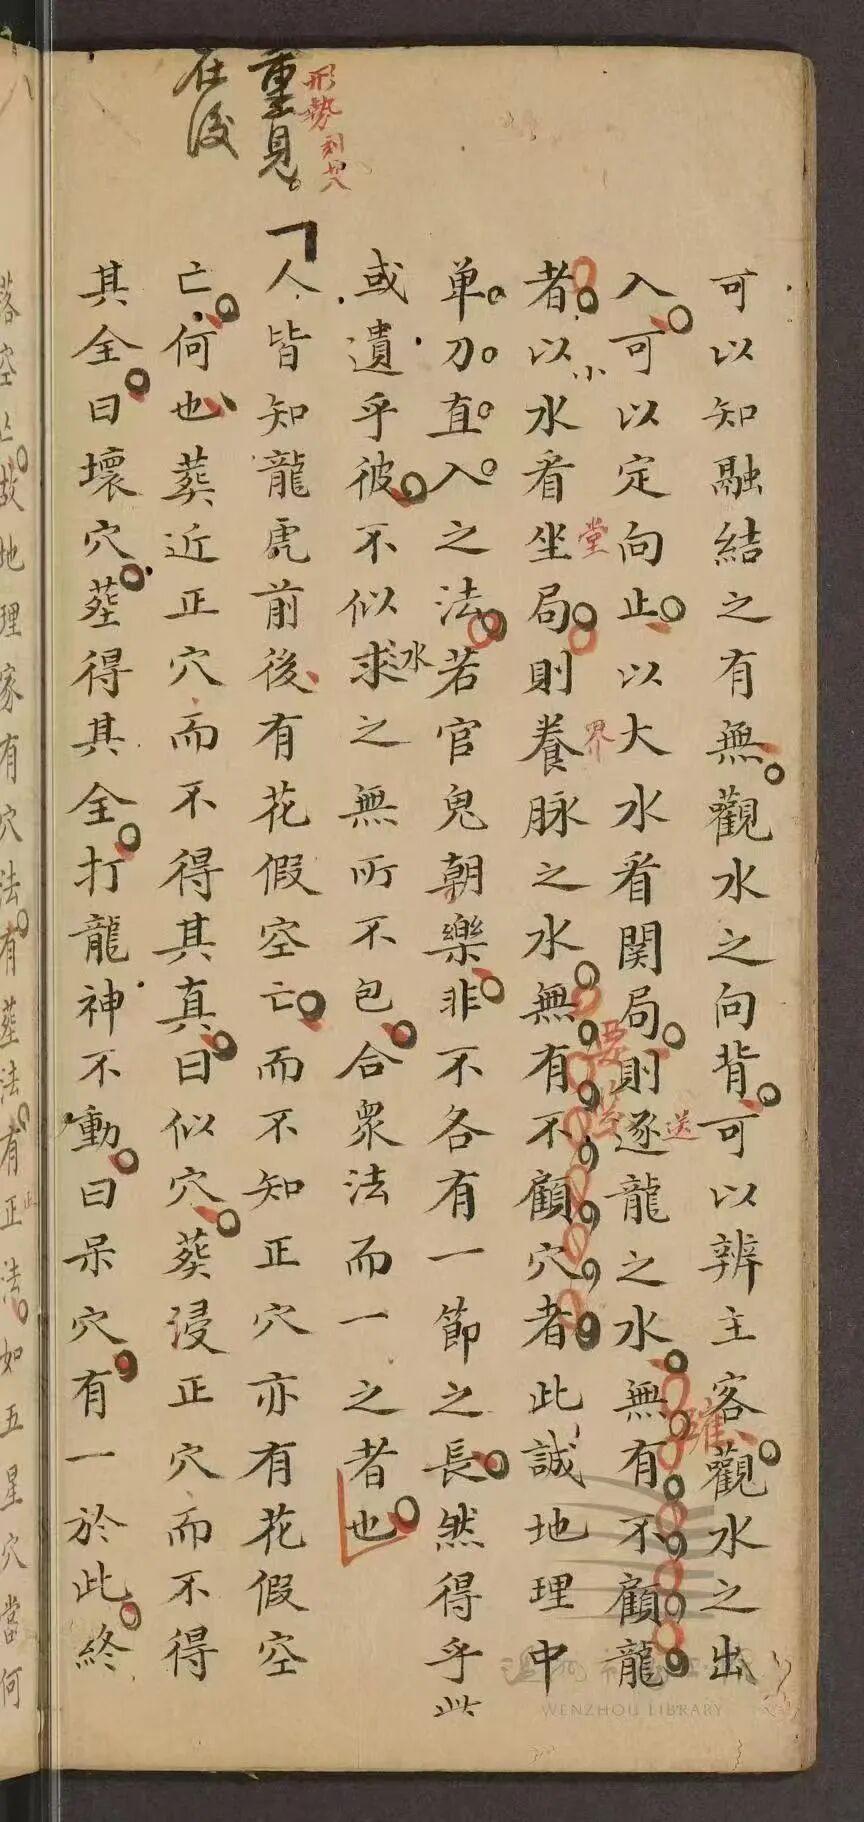 形勢刻
重見
在後
可以知融結之有無觀水之向背可以辨主客觀水之出
入可以定向止以大水看関局則逐龍之水無有不顧龍
送
者以水看坐局則養脉之水無有不顧穴者此誠地理中
小
堂
界
单刀直入之法若官鬼朝樂非不各有一節之長然得乎此
或遺乎彼不似求之無所不包合衆法而一之者也
水
人皆知龍虎前後有花假空亡而不知正穴亦有花假空
亡何也葬近正穴而不得其真曰似穴葬侵正穴而不得
其全曰壞穴塟得其全打龍神不動曰呆穴有一於此終
落空亡故地理家有穴法有塟法有正法如五星穴當何
WENZHOU LIBRARY